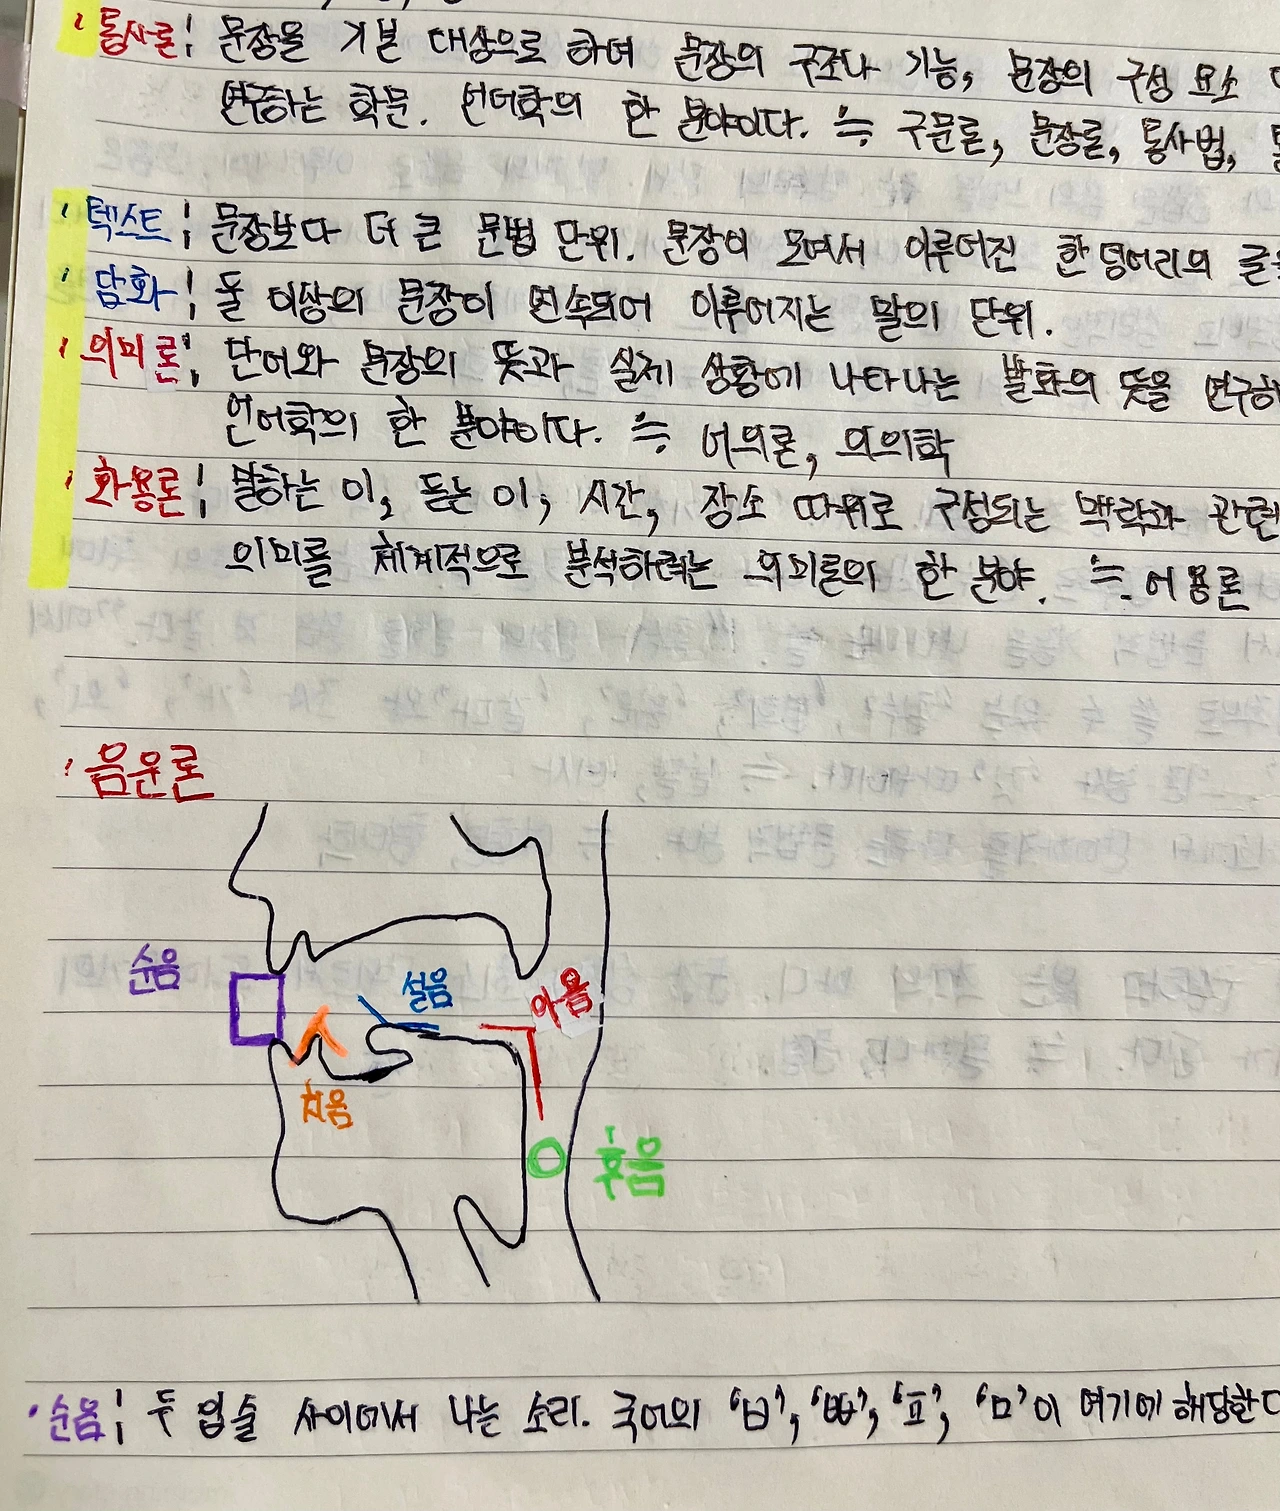 통사론; 문장을 기본 대상으로 하여 문장의 구조나 기능, 문장의 구성 요소
연구하는 학문. 언어학의 한 분야이다. ≒ 구문론, 문장론, 통사법,
텍스트; 문장보다 더 큰 문법 단위. 문장이 모여서 이루어진 한 덩어리의 글
담화; 둘 이상의 문장이 연속되어 이루어지는 말의 단위.
의미론; 단어와 문장의 뜻과 실제 상황에 나타나는 발화의 뜻을 연구하
언어학의 한 분야이다. ≒ 어의론, 의의학
화용론; 말하는 이, 듣는 이, 시간, 장소 따위로 구성되는 맥락과 관련
의미를 체계적으로 분석하려는 의미론의 한 분야. ≒ 어용론
음운론
순음
설음
아음
치음
후음
순음; 두 입술 사이에서 나는 소리. 국어의 'ㅂ', 'ㅃ', 'ㅍ', 'ㅁ'이 여기에 해당한다